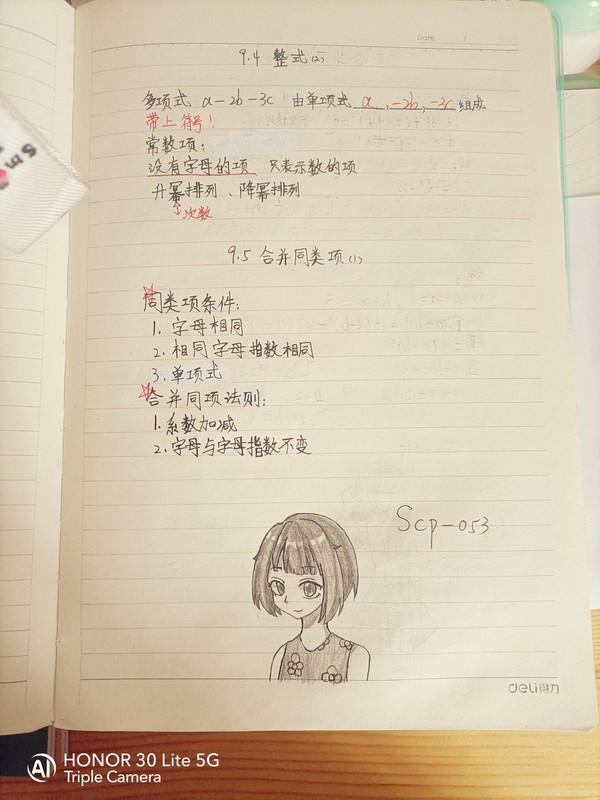 Date / 
9.4 整式(2)
多项式 a-2b-3c 由单项式 a,-2b,-3c 组成
带上符号!
常数项:
没有字母的项 只表示数的项
升幂排列、降幂排列
次数
9.5 合并同类项(1)
同类项条件:
1. 字母相同
2. 相同字母指数相同
3. 单项式
合并同项法则:
1. 系数加减
2. 字母与字母指数不变
Scp-053
deli得力
AI HONOR 30 Lite 5G
Triple Camera